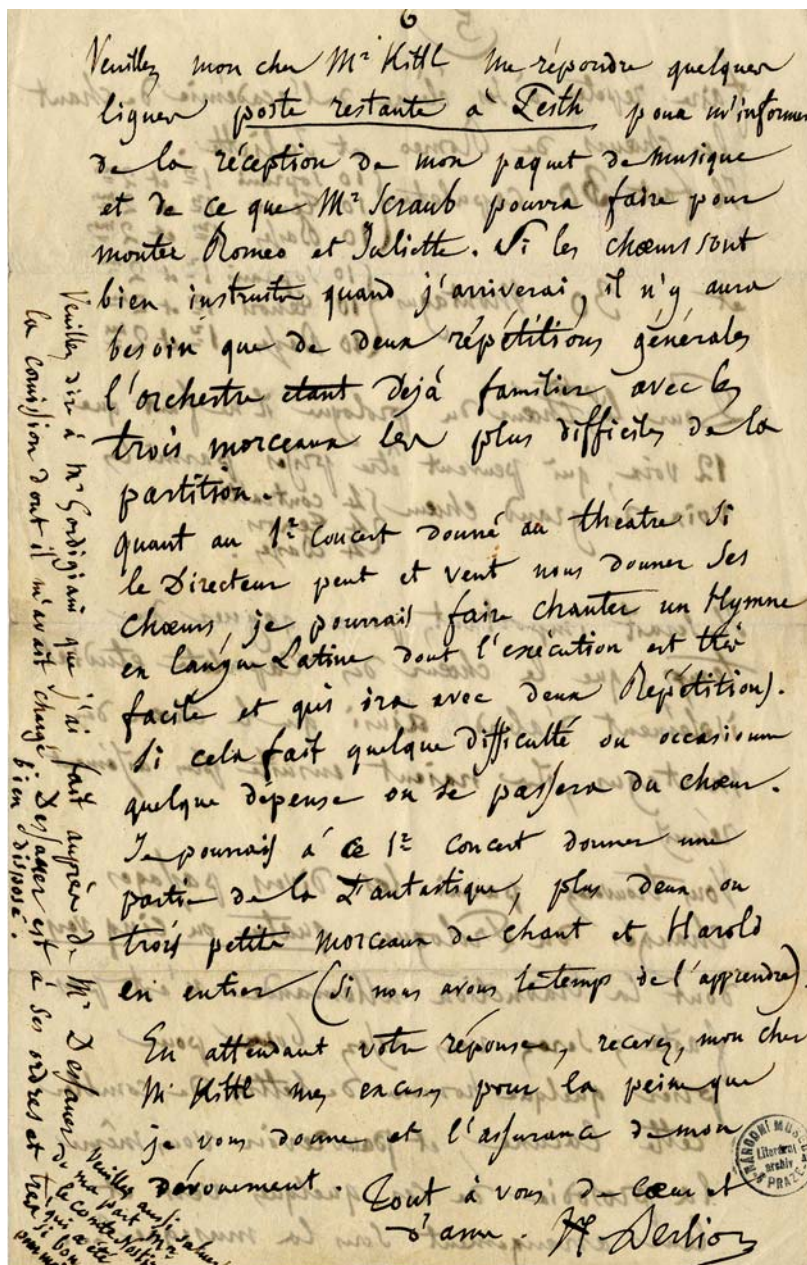 6
Veuillez mon cher Mr Kittl me répondre quelques
lignes poste restante à Pesth pour m'informer
de la réception de mon paquet de musique
et de ce que Mr Scraub pourra faire pour
monter Romeo et Juliette. Si les chœurs sont
bien instruits quand j'arriverai, il n'y aura
besoin que de deux répétitions générales
l'orchestre etant Dejà familier avec les
trois morceaux les plus difficiles de la
partition.
quant au 1er Concert donné au théatre si
le Directeur peut et veut nous donner ses
chœurs, je pourrais faire chanter un Hymne
en langue Latine dont l'exécution est très
facile et qui ira avec deux Répétitions.
Si cela fait quelque difficulté ou occasionne
quelque dépense on se passera du chœur.
Je pourrais à ce 1er Concert donner une
partie de la Fantastique, plus deux ou
trois petits morceaux de chant et Harold
en entier (si nous avons le temps de l'apprendre).
En attendant votre réponse, recevez, mon cher
Mr Kittl mes excuses pour la peine que
je vous donne et l'assurance de mon
dévouement. Tout à vous de cœur et
d'ame. H Berlioz
Veuillez dire à Mr Gordigiani que j'ai fait auprès de Mr Dessauer
la comission dont il m'avait chargé. Dessauer est à ses ordres et très
bien disposé.
Veuillez aussi saluer
de ma part Mr
le comte Nostiz
qui a été
si bon
pour moi
NÁRODNÍ MUSEUM
Literární
archiv
V PRAZE